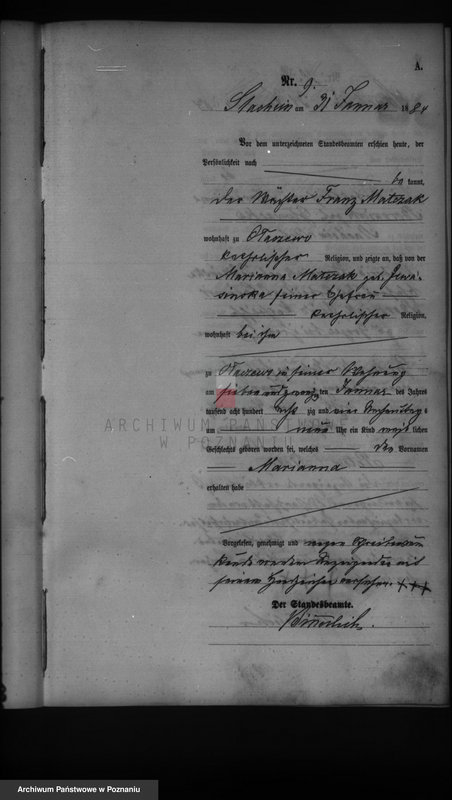 A.
Nr. 9.
am 31 Januar 1884
Vor dem unterzeichneten Standesbeamten erschien heute, der
Persönlichkeit nach
be kannt,
der Wächter Franz Matczak
wohnhaft zu
katholischer Religion, und zeigte an, daß von der
Marianna Matczak geb.
seiner Ehefrau
katholischer Religion,
wohnhaft bei ihm
zu in seiner Wohnung
am sieben und zwanzigsten Januar des Jahres
tausend acht hundert acht zig und vier Nachmittags
um neun Uhr ein Kind weib lichen
Geschlechts geboren worden sei, welches den Vornamen
Marianna
erhalten habe
ARCHIWUM PAŃSTWOWE
W POZNANIU
Vorgelesen, genehmigt und wegen Schreibens
unkunde werden Anzeigenden mit
seinem Handzeichen versehen. +++
Der Standesbeamte.
Archiwum Państwowe w Poznaniu